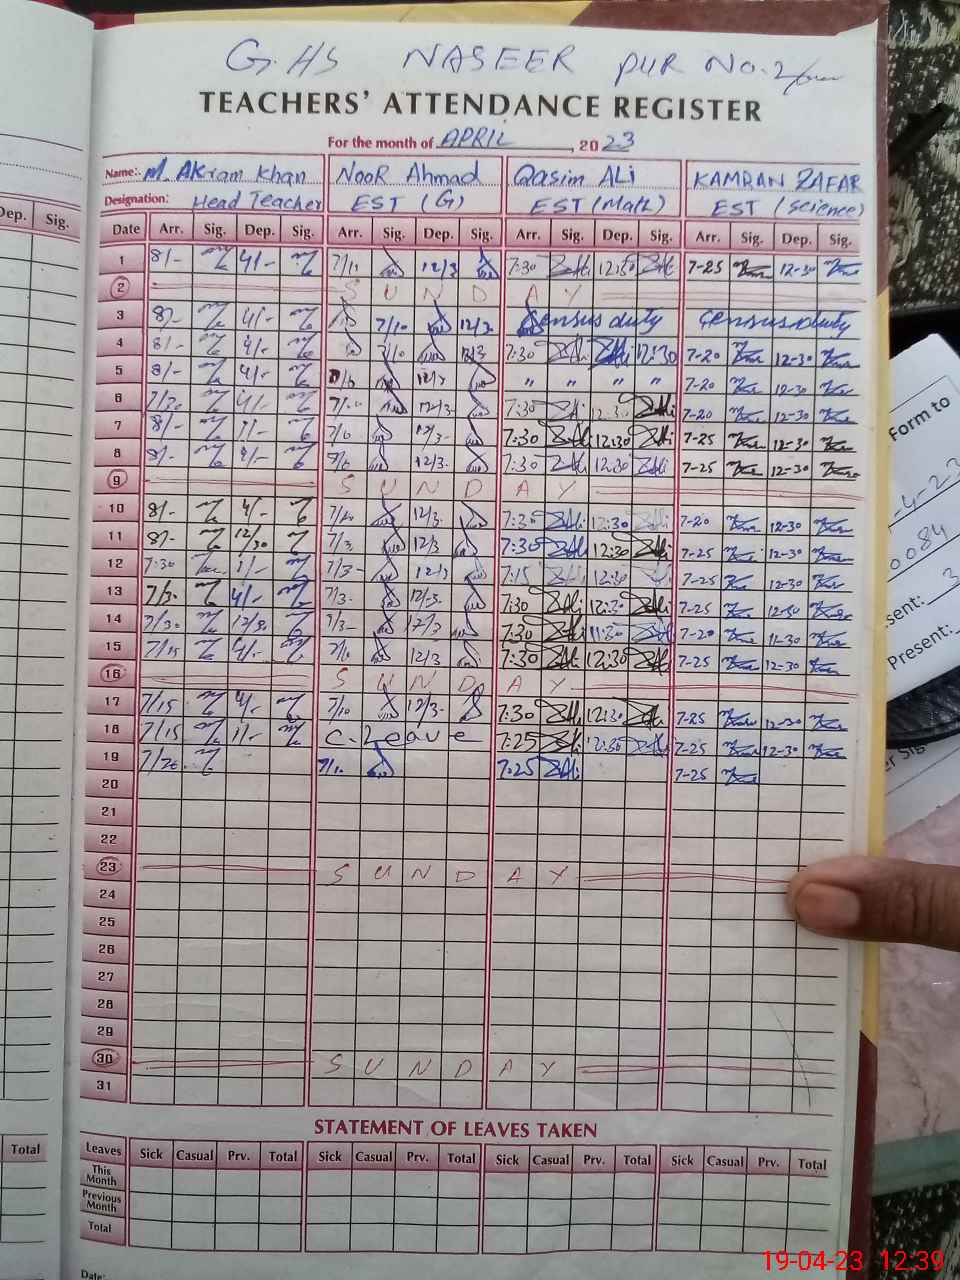 G.HS NASEER PUR No.2
TEACHERS' ATTENDANCE REGISTER
For the month of APRIL, 2023
Name: M. AKram Khan NOOR Ahmad Qasim ALi KAMRAN ZAFAR
Designation: Head Teacher EST (G) EST (Math) EST (science)
Dep. Sig.
Date Arr. Sig. Dep. Sig. Arr. Sig. Dep. Sig. Arr. Sig. Dep. Sig. Arr. Sig. Dep. Sig.
1 8/- 4/- 7/10 12/3 7:30 12:30 7-25 12-30
2 S U N D A Y
3 8/- 4/- 7/10 12/3. Census duty Census duty
4 8/- 4/- 7/10 12/3 7:30 12:30 7-20 12-30
5 8/- 4/- 12/3 " " " " 7-20 12-30
6 7/30 4/- 12/3- 7:30 12:30 7-20 12-30
7 8/- 1/- 12/3- 7:30 12:30 7-25 12-30
8 8/- 12/3. 7:30 12:30 7-25 12-30
9 S U N D A Y
10 8/- 4/- 12/3. 7:30 12:30 7-20 12-30
11 8/- 12/30 7/3. 12/3 7:30 12:30 7-25 12-30
12 7:30 1/- 7/3- 12/3 7:15 12:30 7-25 12-30
13 7/3. 4/- 7/3- 12/3. 7:30 12:30 7-25 12-30
14 7/30 7/3- 12/3 7:30 11:30 7-20 11-30
15 7/15 4/- 7/10 12/3 7:30 12:30 7-25 12-30
16 S U N D A Y
17 7/15 4/- 7/10 12/3- 7:30 12:30 7-25 12-30
18 7/15 1/- C. Leave 7:25 12:30 7-25 12-30
19 7/20 7/10 7:25 7-25
20
21
22
23 S U N D A Y
24
25
26
27
28
29
30 S U N D A Y
31
STATEMENT OF LEAVES TAKEN
Total
Leaves Sick Casual Prv. Total Sick Casual Prv. Total Sick Casual Prv. Total Sick Casual Prv. Total
This Month
Previous Month
Total
Date:
Form to
-4-23
0084
sent: 3
Present:
er Sig
19-04-23 12:39